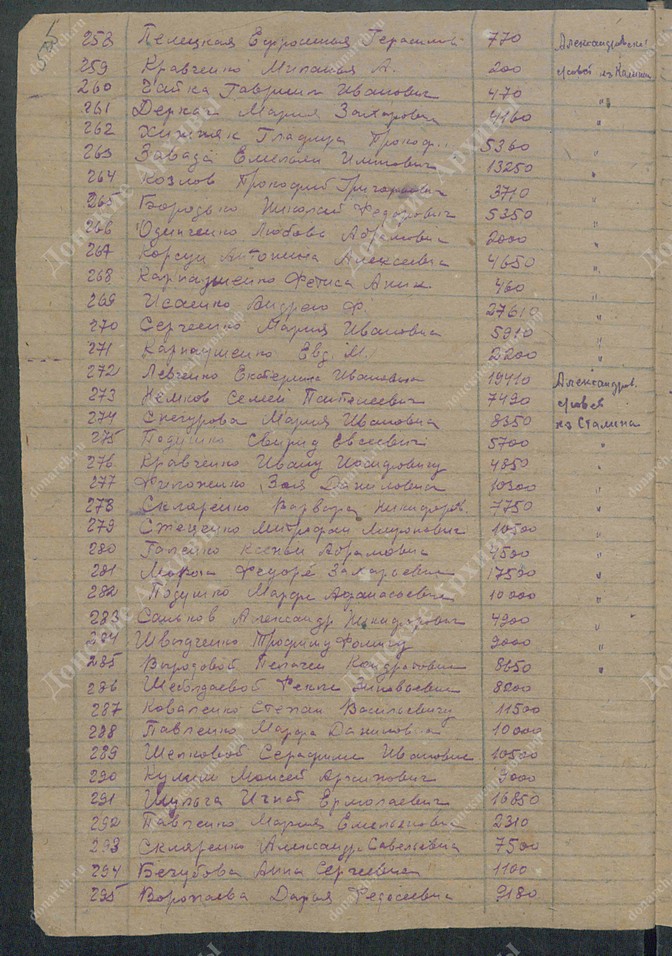 258 Пелецкая Ефросинья Герасимов 770 Александровский
259 Кравченко Милания А. 200 с/совет из
260 Чайка Гавриил Иванович 470 "
261 Деркач Мария Захаровна 4160 "
262 Хижняк Гладира Прокоф.. 5360 "
263 Завада Емельян 13250 "
264 Козлов Прокофий Григорьевич 3710 "
265 Бородько Николай Федорович 5350 "
266 Одинченко Любовь Абрамовна 2000 "
267 Корсун Антонина Алексеевна 4650 "
268 Карпаушенко 460 "
269 Исаенко Андрею Ф. 27610 "
270 Сергеенко Мария Ивановна 5910 "
271 Карпаушенко Евд. М. 2200 "
272 Левченко Екатерина Ивановна 19410 Александров.
273 Немков Семен Пантелеевич 7490 с/совет
274 Снегурова Мария Ивановна 8350 из Сталина
275 Подушко Свирид Евсеевич 5700 "
276 Кравченко Ивану 4850 "
277 Зоя Даниловна 10300 "
278 Скляренко Варвара Никифоров. 7750 "
279 Митрофан Миронович 10500 "
280 Гапенко Ксенья Абрамовна 4500 "
281 Мороз Федоре Захарьевне 17500 "
282 Подушко Марфе Афанасьевне 10200 "
283 Саньков Александр Никифорович 4900 "
284 Швыдченко Трофиму Фомичу 9000 "
285 Выродовой Пелагеи Кондратьевне 8650 "
286 Шебалдаевой Фекле 8200
287 Коваленко Степан Васильевичу 11500
288 Павленко Марфа Даниловна 10000
289 Шелковой Серафиме Ивановне 10500
290 Кулиш Моисей Архипович 9000
291 Шульга Игнат Ермолаевич 16850
292 Павленко Мария Емельяновна 2310
293 Скляренко Александр Савельевич 7500
294 Бечубова Анна Сергеевна 1100
295 Воропаева Дарья Федосеевна 9180
Донские Архивы
donarch.ru